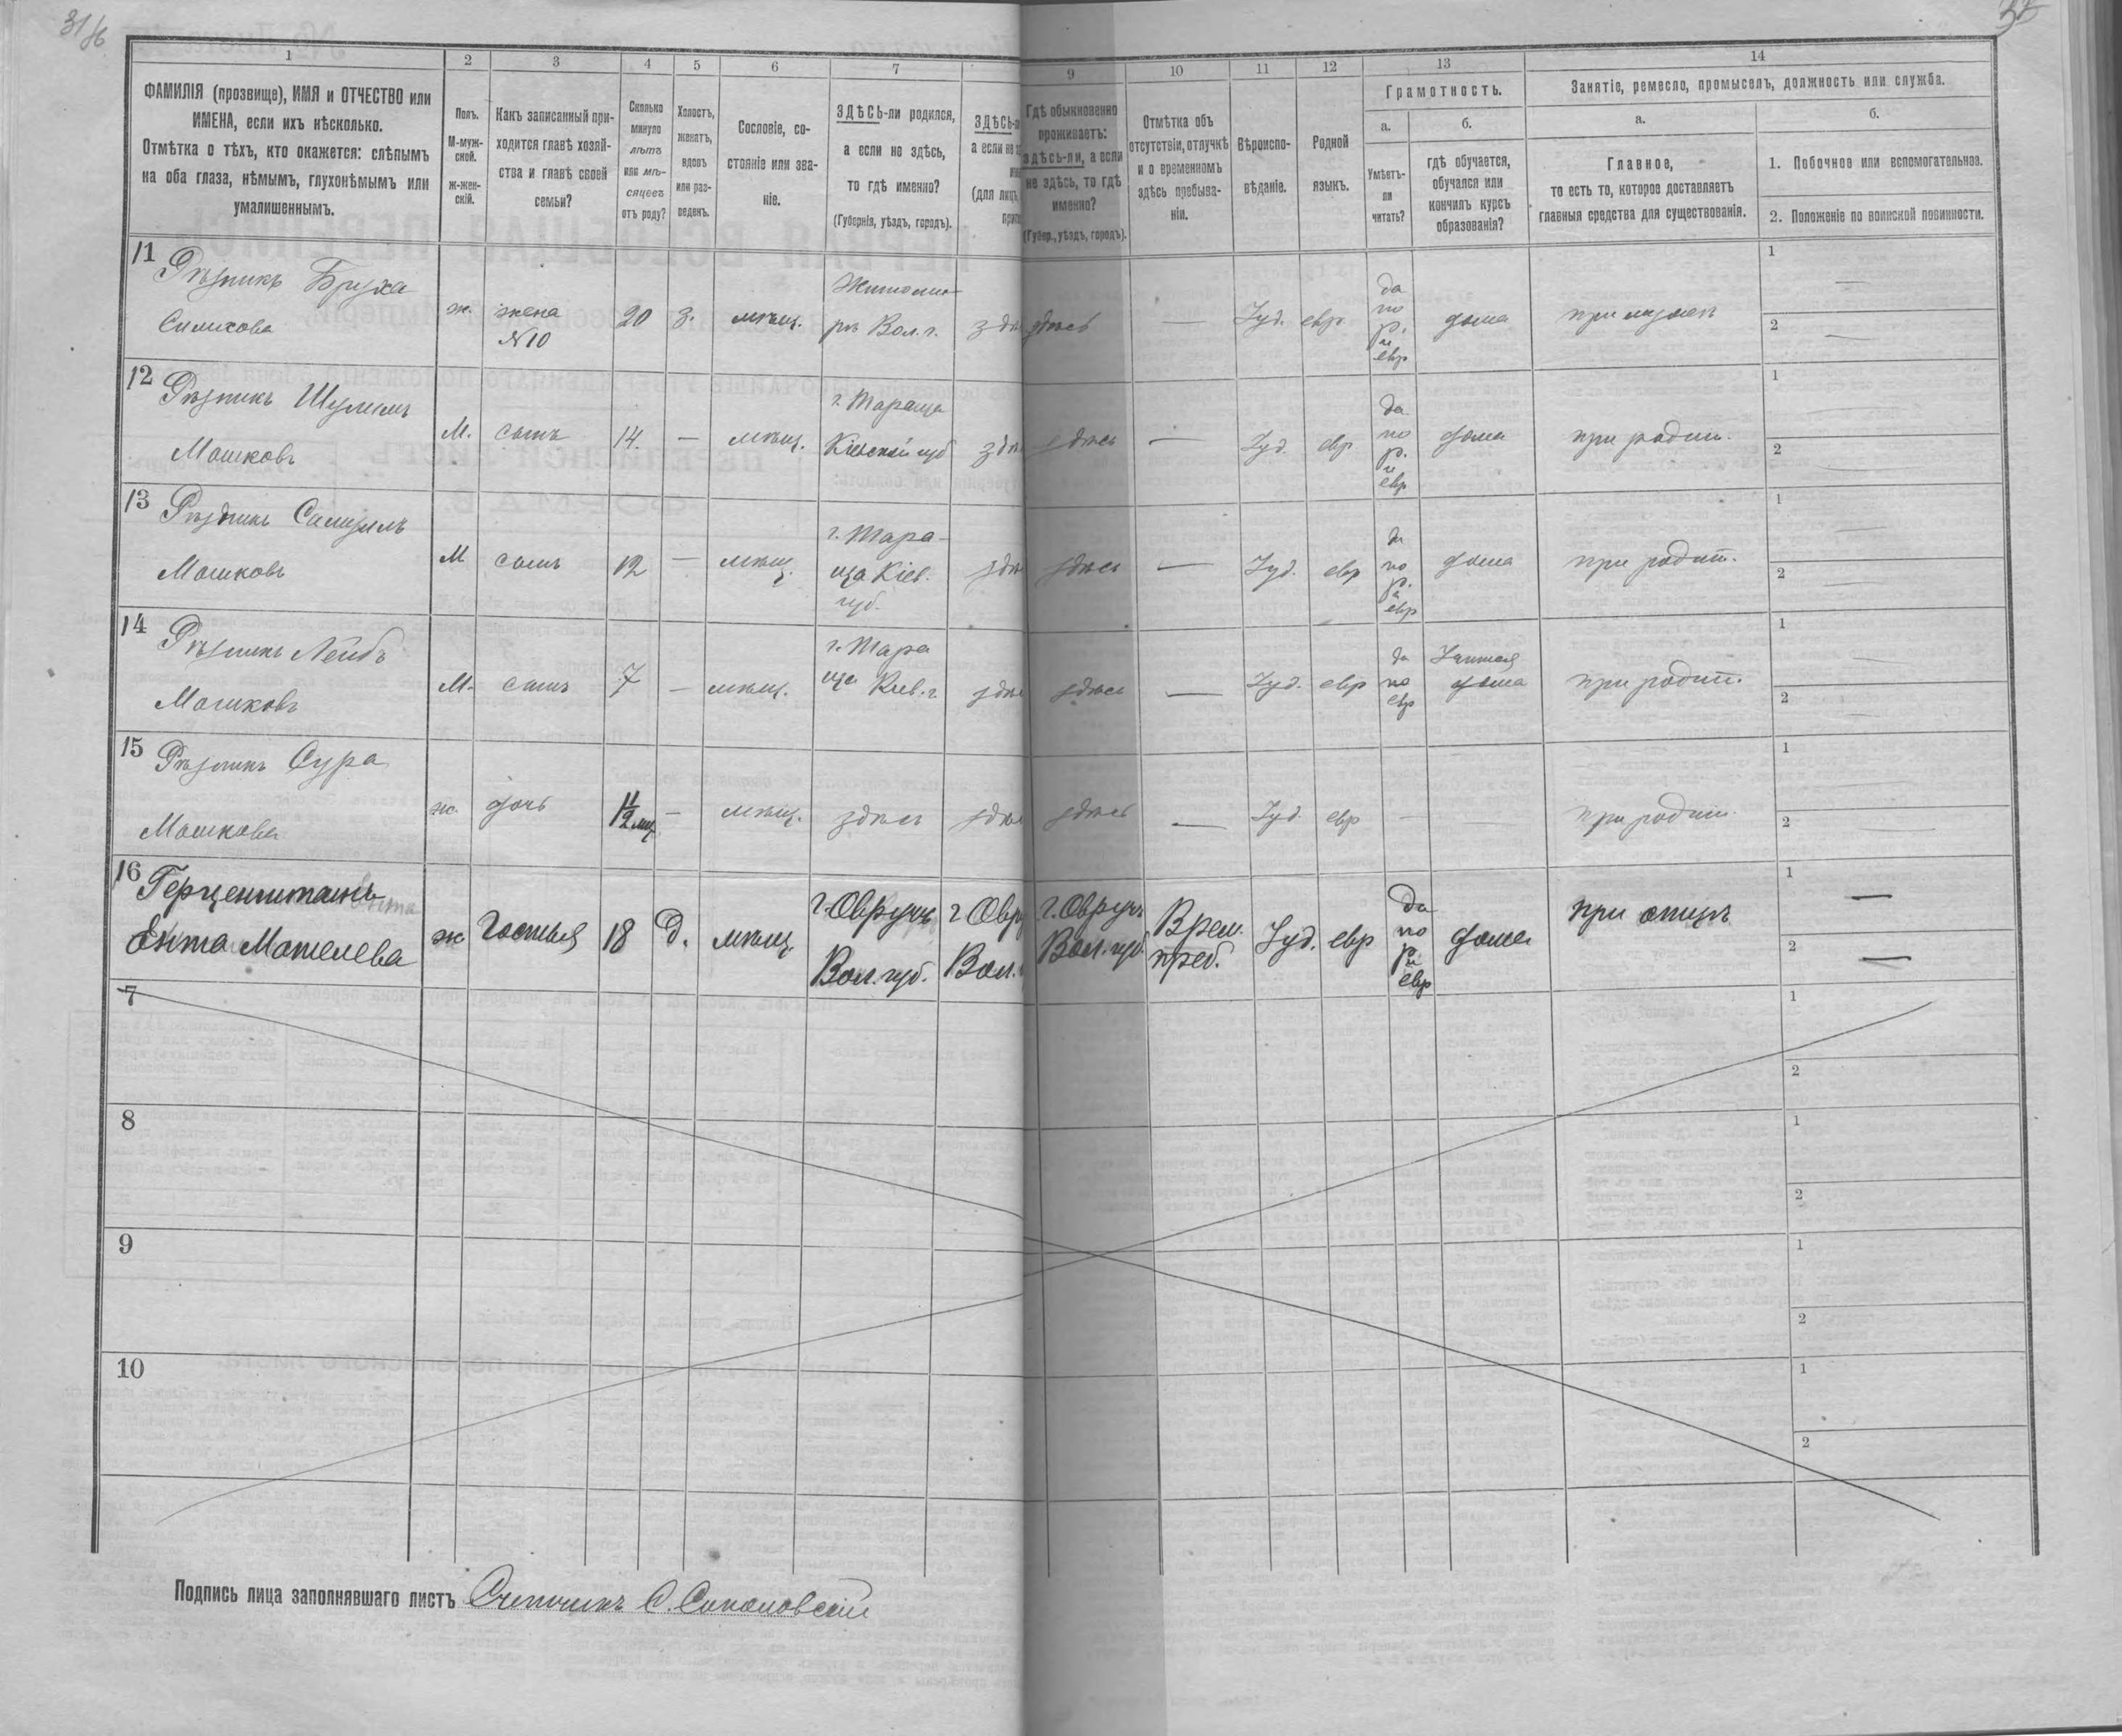 31/6
1
ФАМИЛІЯ (прозвище), ИМЯ и ОТЧЕСТВО или
ИМЕНА, если ихъ нѣсколько.
Отмѣтка о тѣхъ, кто окажется: слѣпымъ
на оба глаза, нѣмымъ, глухонѣмымъ или
умалишеннымъ.
2
Полъ.
М-муж-
ской.
ж-жен-
скій.
3
Какъ записанный при-
ходится главѣ хозяй-
ства и главѣ своей
семьи?
4
Сколько
минуло
лѣтъ
или мѣ-
сяцевъ
отъ роду?
5
Холостъ,
женатъ,
вдовъ
или раз-
веденъ.
6
Сословіе, со-
стояніе или зва-
ніе.
7
ЗДѢСЬ-ли родился,
а если не здѣсь,
то гдѣ именно?
(Губернія, уѣздъ, городъ).
ЗДѢСЬ-
а если не
(Для лицъ
9
Гдѣ обыкновенно
проживаетъ:
здѣсь-ли, а если
не здѣсь, то гдѣ
именно?
(Губер., уѣздъ, городъ).
10
Отмѣтка объ
отсутствіи, отлучкѣ
и о временномъ
здѣсь пребыва-
ніи.
11
Вѣроиспо-
вѣданіе.
12
Родной
языкъ.
13
Грамотность.
а.
Умѣетъ-
ли
читать?
б.
гдѣ обучается,
обучался или
кончилъ курсъ
образованія?
14
Занятіе, ремесло, промыселъ, должность или служба.
а.
Главное,
то есть то, которое доставляетъ
главныя средства для существованія.
б.
1. Побочное или вспомогательное.
2. Положеніе по воинской повинности.
11 Рѣзникъ Бруха
ж. жена 20 з. мѣщ. Житомир
№10 ръ Вол. г. здѣсь — Іуд. евр. да по р. и евр дома при мужѣ
1 —
2 —
12 Рѣзникъ Шулимъ
Мошковъ
М. сынъ 14. — мѣщ. г. Тараща
Кіевской губ здѣсь — Іуд. евр да по р. и евр дома при родит.
1 —
2 —
13 Рѣзникъ
Мошковъ
М сынъ 12 — мѣщ. г. Тара-
ща Кіев.
губ. здѣсь — Іуд. евр да по р. и евр дома при родит.
1 —
2 —
14 Рѣзникъ Лейбъ
Мошковъ
М. сынъ 7 — мѣщ. г. Тара
ща Кіев. г здѣсь — Іуд. евр да по евр дома при родит.
1 —
2 —
15 Рѣзникъ Сура
Мошкова
ж. дочь 11/12 мц. — мѣщ. здѣсь здѣсь — Іуд. евр — — при родит.
1 —
2 —
16 Герценштейнъ
Ента Мотелева
ж Гостья 18 д. мѣщ. г. Овручъ
Вол. губ.
г Овру
Вол.
г. Овручъ
Вол. губ.
Врем.
преб.
Іуд. евр да по р и евр дома при отцѣ
1 —
2 —
7
1
2
8
1
2
9
1
2
10
1
2
Подпись лица заполнявшаго листъ Счетчикъ С.